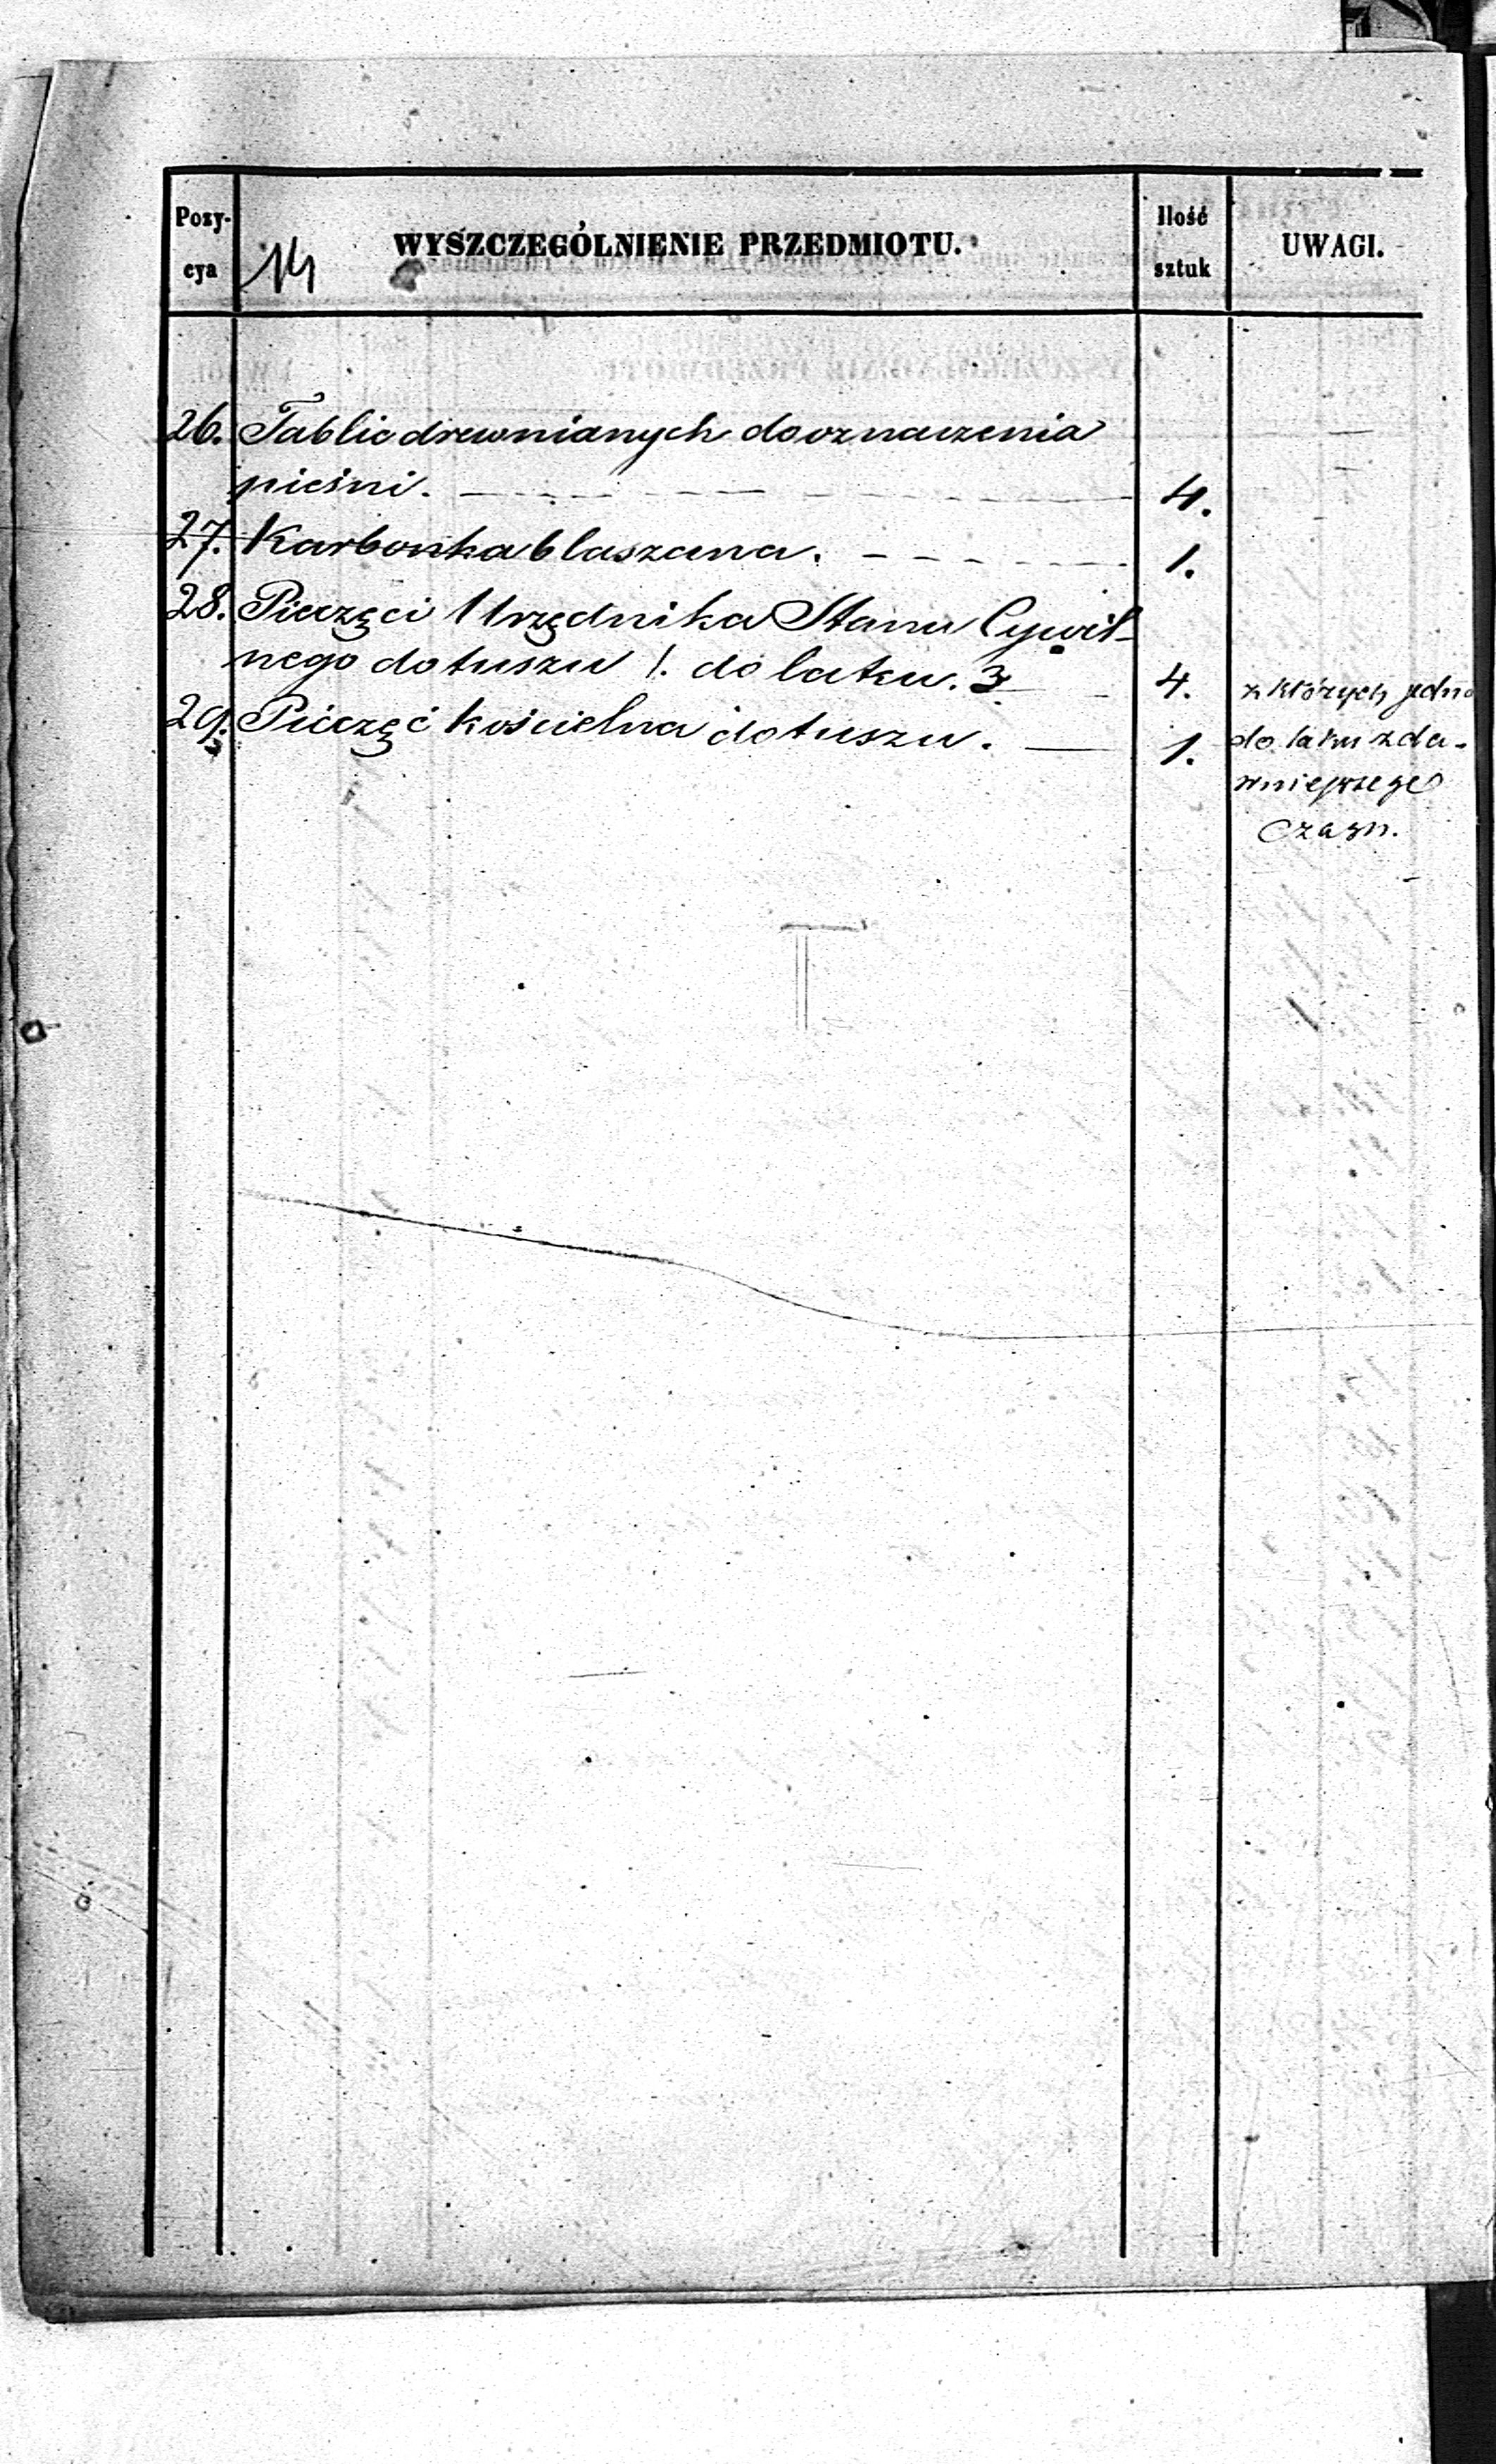 Pozy-
cya
14
WYSZCZEGÓLNIENIE PRZEDMIOTU.
Ilość
sztuk
UWAGI.
26. Tablic drewnianych do oznaczenia
pieśni. 4.
27. Karbonka blaszana. 1.
28. Pieczęci Urzędnika Stanu Cywil-
nego do tuszu 1. do laku. 3 4. z których jedna
29. Pieczęć kościelna do tuszu. 1. do laku z da-
wniejszego
czasu.